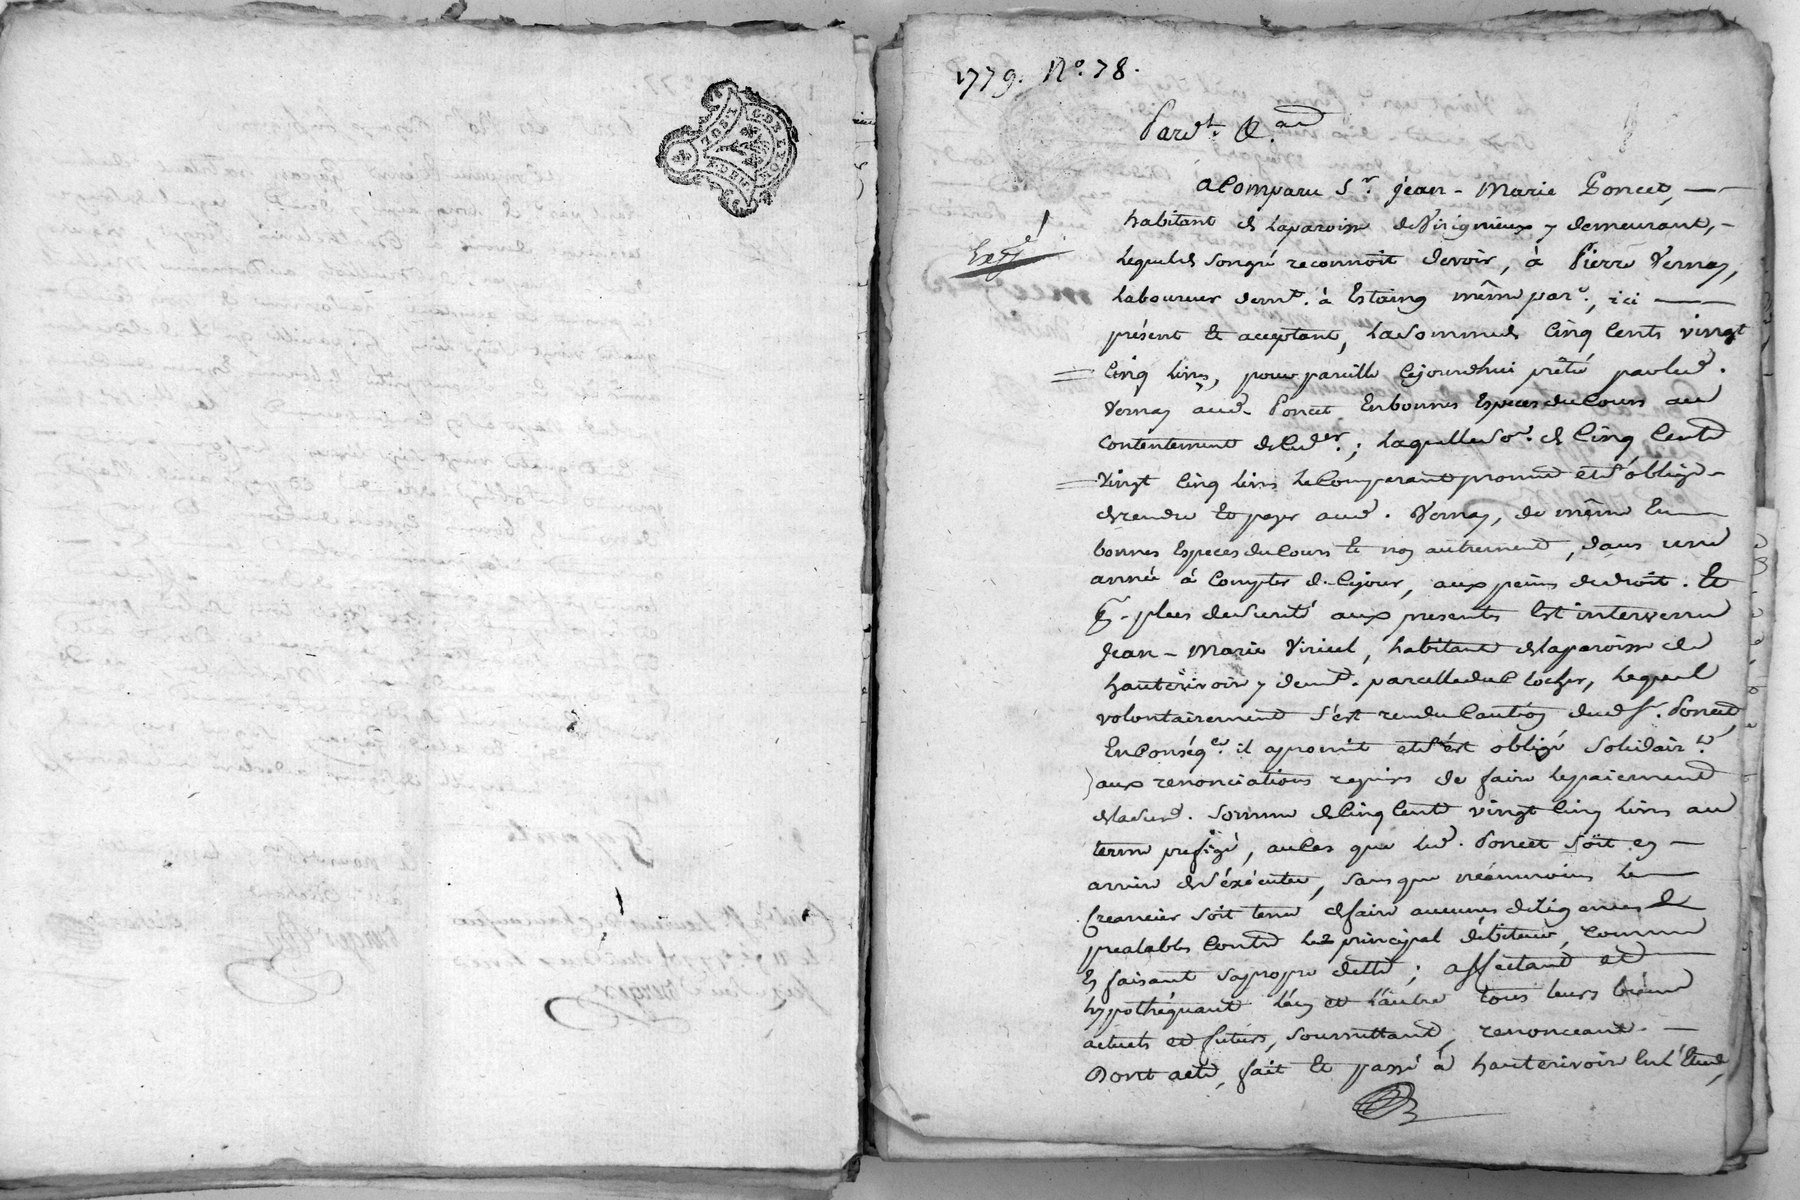 1779. N°. 78.
Pard.t &.a
a Comparu S.r jean-Marie Poncet, —
habitant de laparoisse deVirignieux y demeurant, -
Exp.é
lequel de songré reconnoit devoir, à Pierre Vernay,
laboureur demt. à Estaing même par.e, ici —
présent et acceptant, lasomme de Cinq Cents vingt
Cinq livres, pour pareille cejourdhui prêté parled.
Vernay aud. Poncet en bonnes Especes du Cours au
Contentement de Ced.er; laquelle so.e de Cinq Cents
vingt Cinq livres le Comparant promet et s'oblige
de rendre et payer aud. Vernay, de même En
bonnes Especes du Cours et non autrement, dans une
année à Compter de Cejour, aux peines de droit. Et
p.r plus de sureté aux presentes Est intervenu
jean-Marie Viricel, habitant de laparoisse de
hauterivoir y demt. parcelle du Clocher, lequel
volontairement s'est rendu Caution dud. Sr. Poncet,
En Conséq.ce il a promit et s'est obligé solidair.t
aux renonciations requises de faire le paiement
de lasusd. somme de Cinq Cent vingt Cinq livres au
terme prefigé, au Cas que led. Poncet soit en —
arriere de s'éxécuter, sans que néanmoins le
Creancier soit tenu de faire aucunes diligences
prealables Contre le principal débiteur, Comme
En faisant sa propre dette; affectant et
hypothéquant l'un et l'autre tous leurs biens
actuels et futurs, soumettant, renonceant. —
Dont acte, fait et passé à hauterivoir En l'Etude,